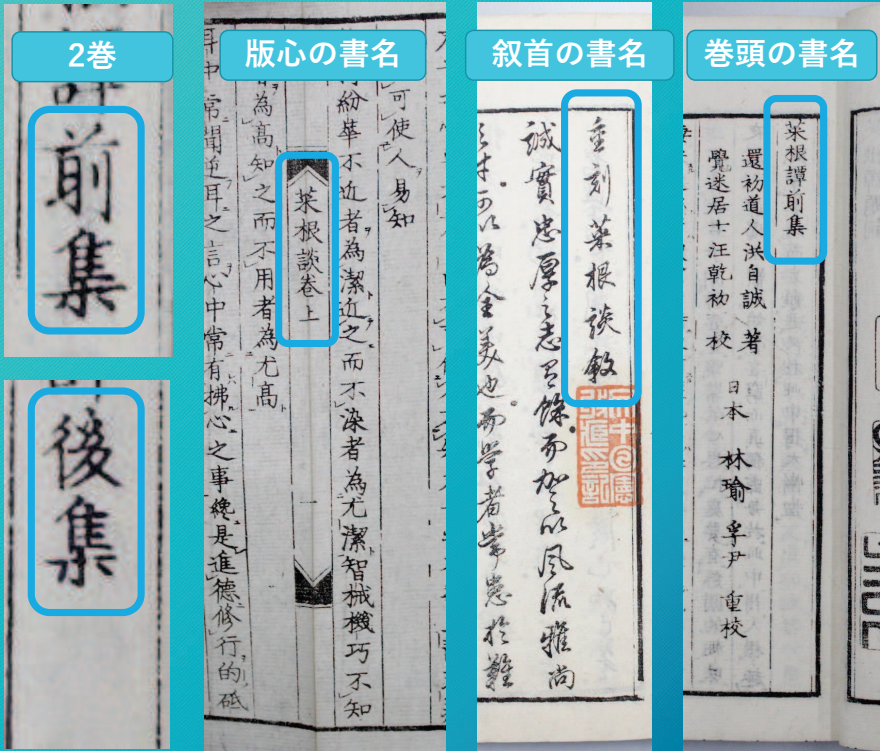 2巻
前集
後集
版心の書名
可使人易知
紛華不近者為潔近之而不染者為尤潔智械機巧不知
菜根談卷上
一
為高知之而不用者為尤高
耳中常聞逆耳之言心中常有拂心之事纔是進德修行的砥
叙首の書名
重刻菜根談敘
誠實忠厚之志有餘而加之以風流雅尚
巻頭の書名
菜根譚前集
還初道人洪自誠 著
覺迷居士汪乾初 校
日本 林瑜 孚尹 重校